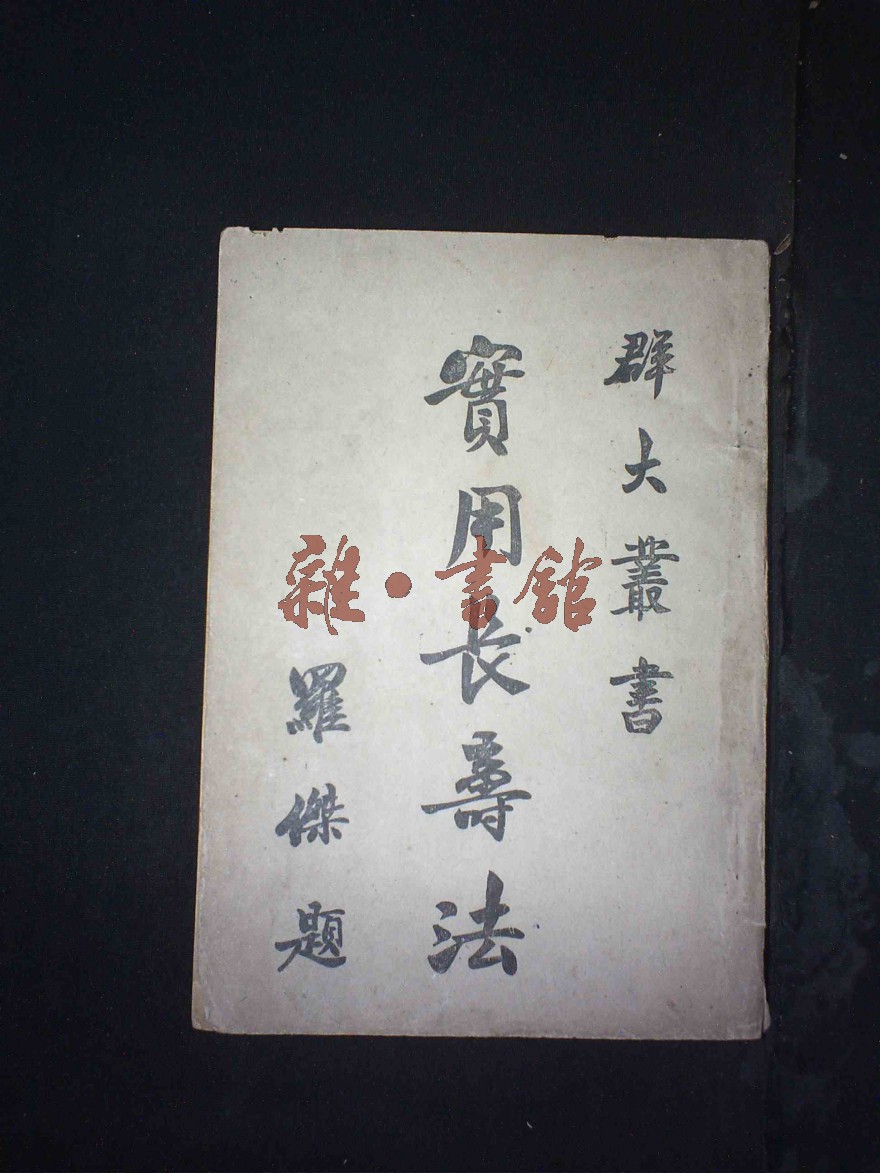 群大叢書
實用長壽法
羅傑題
雜·書館